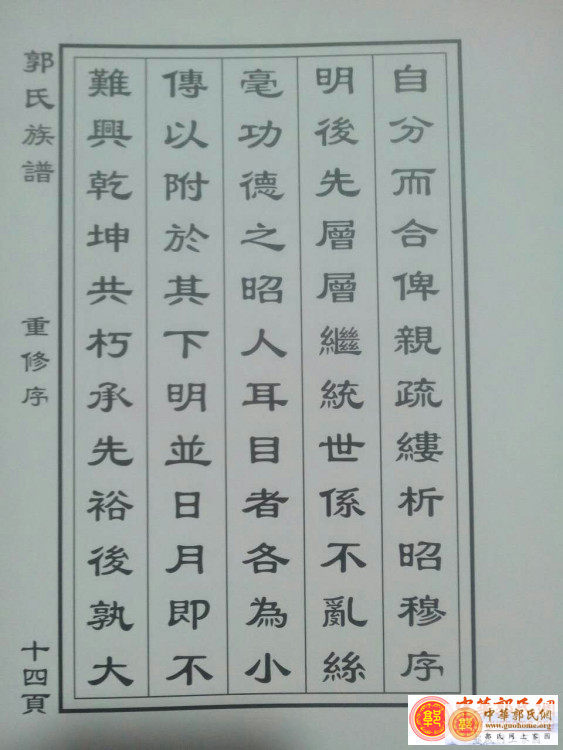 自分而合俾親疏縷析昭穆序
明後先層層繼統世係不亂絲
毫功德之昭人耳目者各為小
傳以附於其下明並日月即不
難興乾坤共朽承先裕後孰大
郭氏族譜
重修序
十四頁
中華郭氏網
中華郭氏網
www.guohome.org
郭氏网上家园